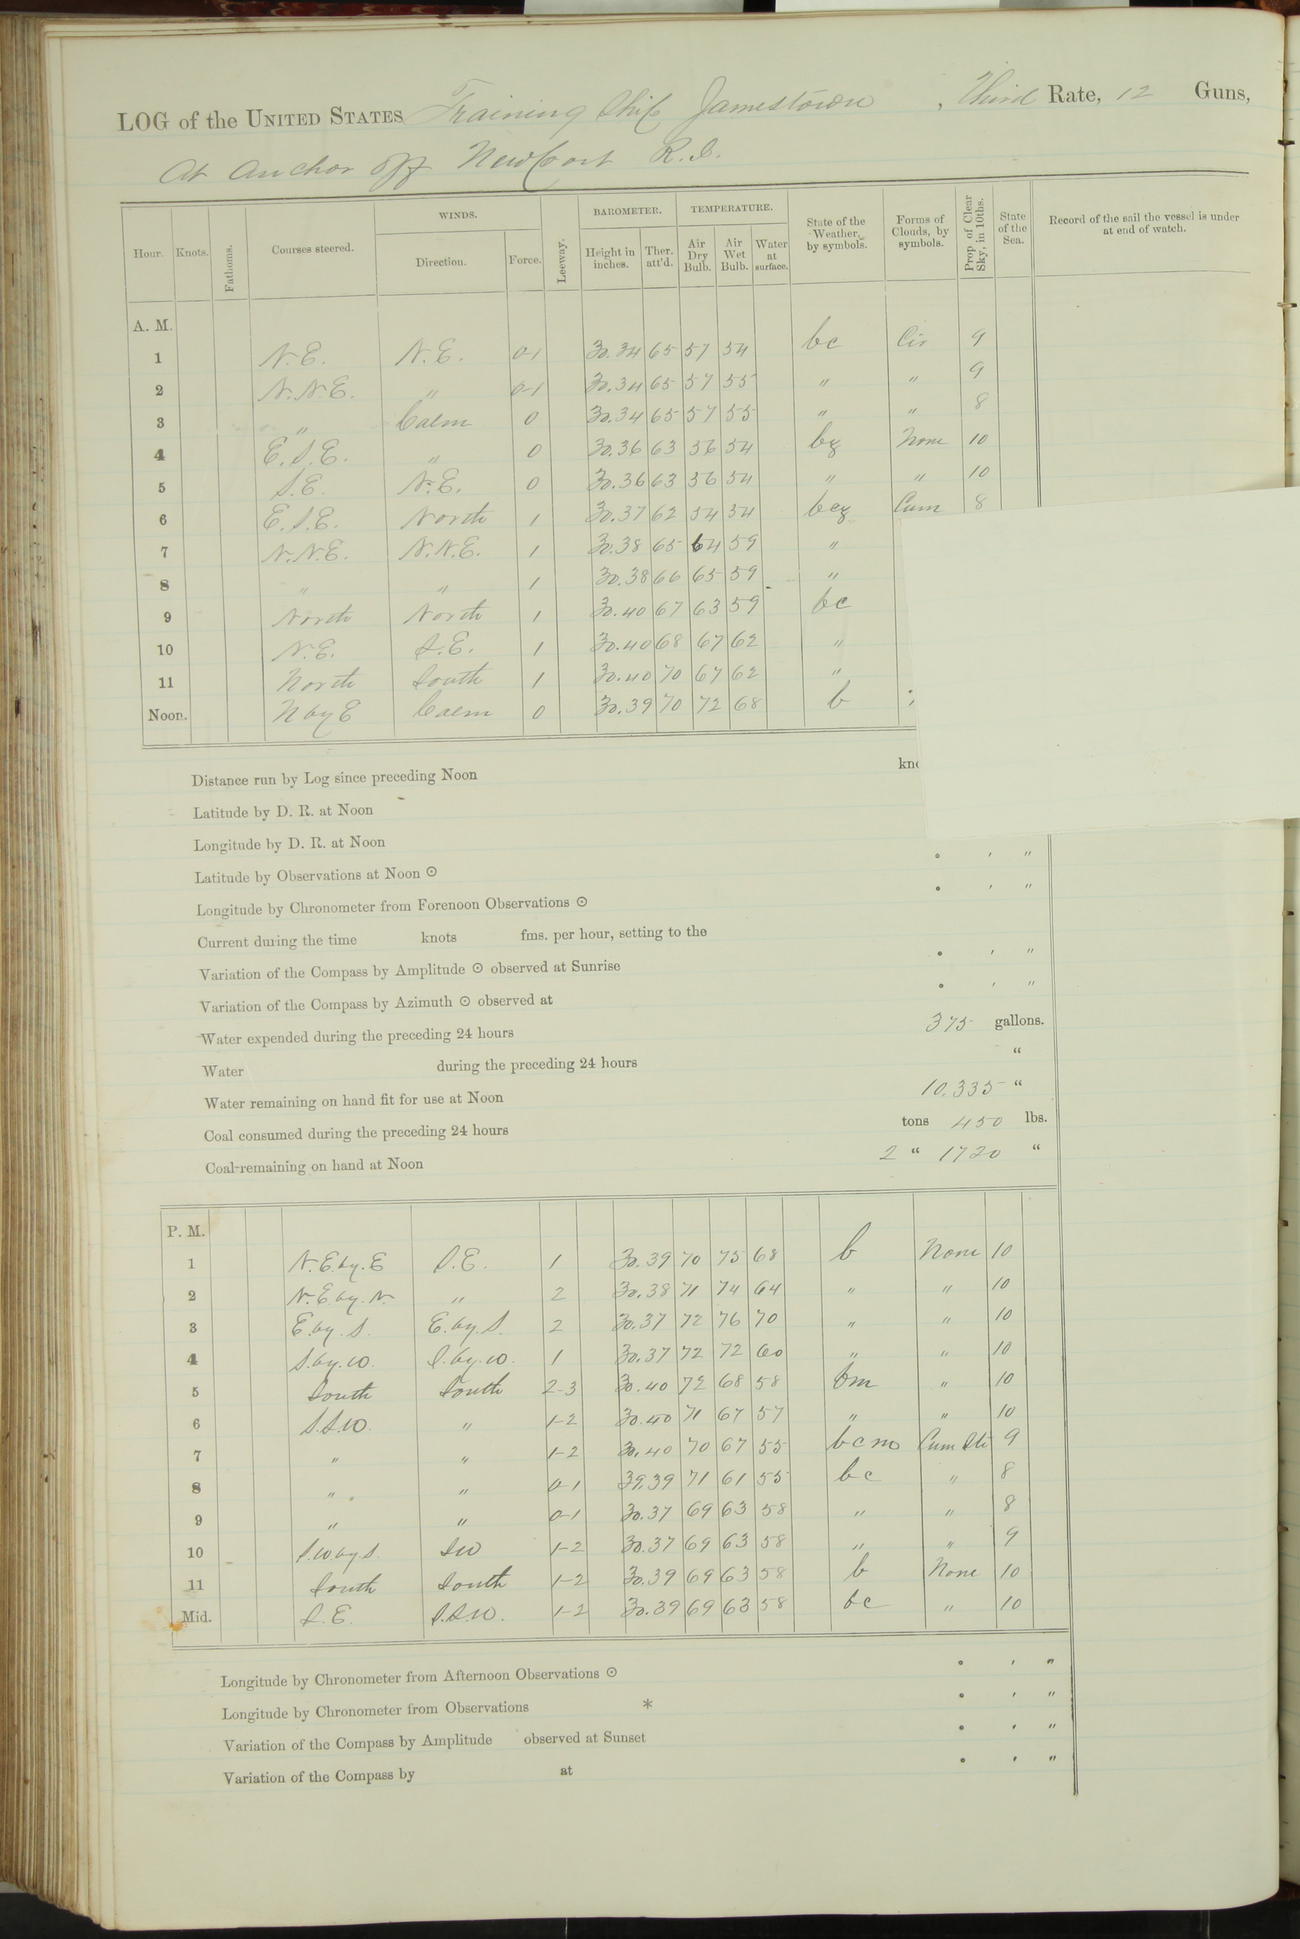 LOG of the UNITED STATES Training Ship Jamestown, Third Rate, 12 Guns,
At anchor off Newport R.I.
Hour. Knots. Fathoms. Courses steered. WINDS. Direction. Force. Leeway. BAROMETER. Height in inches. Ther. att'd. TEMPERATURE. Air Dry Bulb. Air Wet Bulb. Water at surface. State of the Weather, by symbols. Forms of Clouds, by symbols. Prop. of Clear Sky, in 10ths. State of the Sea. Record of the sail the vessel is under at end of watch.
A. M.
1 N.E. N.E. 0-1 30.34 65 57 54 bc Cir 9
2 N.N.E. " 0-1 30.34 65 57 55 " " 9
3 " Calm 0 30.34 65 57 55 " " 8
4 E.S.E. " 0 30.36 63 56 54 bz None 10
5 S.E. N.E. 0 30.36 63 56 54 " " 10
6 E.S.E. North 1 30.37 62 54 54 bcz Cum 8
7 N.N.E. N.N.E. 1 30.38 65 64 59 "
8 " " 1 30.38 66 65 59 "
9 North North 1 30.40 67 63 59 bc
10 N.E. S.E. 1 30.40 68 67 62 "
11 North South 1 30.40 70 67 62 "
Noon. N by E Calm 0 30.39 70 72 68 b
Distance run by Log since preceding Noon kno
Latitude by D. R. at Noon
Longitude by D. R. at Noon
Latitude by Observations at Noon ⊙ ° ' "
Longitude by Chronometer from Forenoon Observations ⊙ ° ' "
Current during the time knots fms. per hour, setting to the
Variation of the Compass by Amplitude ⊙ observed at Sunrise ° ' "
Variation of the Compass by Azimuth ⊙ observed at ° ' "
Water expended during the preceding 24 hours 375 gallons.
Water during the preceding 24 hours "
Water remaining on hand fit for use at Noon 10.335 "
Coal consumed during the preceding 24 hours tons 450 lbs.
Coal remaining on hand at Noon 2 " 1720 "
P. M.
1 N.E. by. E S.E. 1 30.39 70 75 68 b None 10
2 N.E. by. N. " 2 30.38 71 74 64 " " 10
3 E. by. S. E. by. S. 2 30.37 72 76 70 " " 10
4 S. by. W. S. by. W. 1 30.37 72 72 60 " " 10
5 South South 2-3 30.40 72 68 58 bm " 10
6 S.S.W. " 1-2 30.40 71 67 57 " " 10
7 " " 1-2 30.40 70 67 55 bcm Cum Sti 9
8 " " 0-1 30.39 71 61 55 bc " 8
9 " " 0-1 30.37 69 63 58 " " 8
10 S.W. by S. SW 1-2 30.37 69 63 58 " " 9
11 South South 1-2 30.39 69 63 58 b None 10
Mid. S.E. S.S.W. 1-2 30.39 69 63 58 bc " 10
Longitude by Chronometer from Afternoon Observations ⊙ ° ' "
Longitude by Chronometer from Observations * ° ' "
Variation of the Compass by Amplitude observed at Sunset ° ' "
Variation of the Compass by at ° ' "